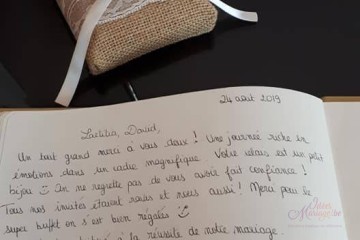 24 août 2019
Laetitia, David,
Un tout grand merci à vous deux ! Une journée riche en
émotions dans un cadre magnifique. Votre relais est un petit
bijou :) On ne regrette pas de vous avoir fait confiance !
Tous nos invités étaient ravis et nous aussi ! Merci pour le
super buffet on s'est bien régalés
à la réussite de notre mariage.